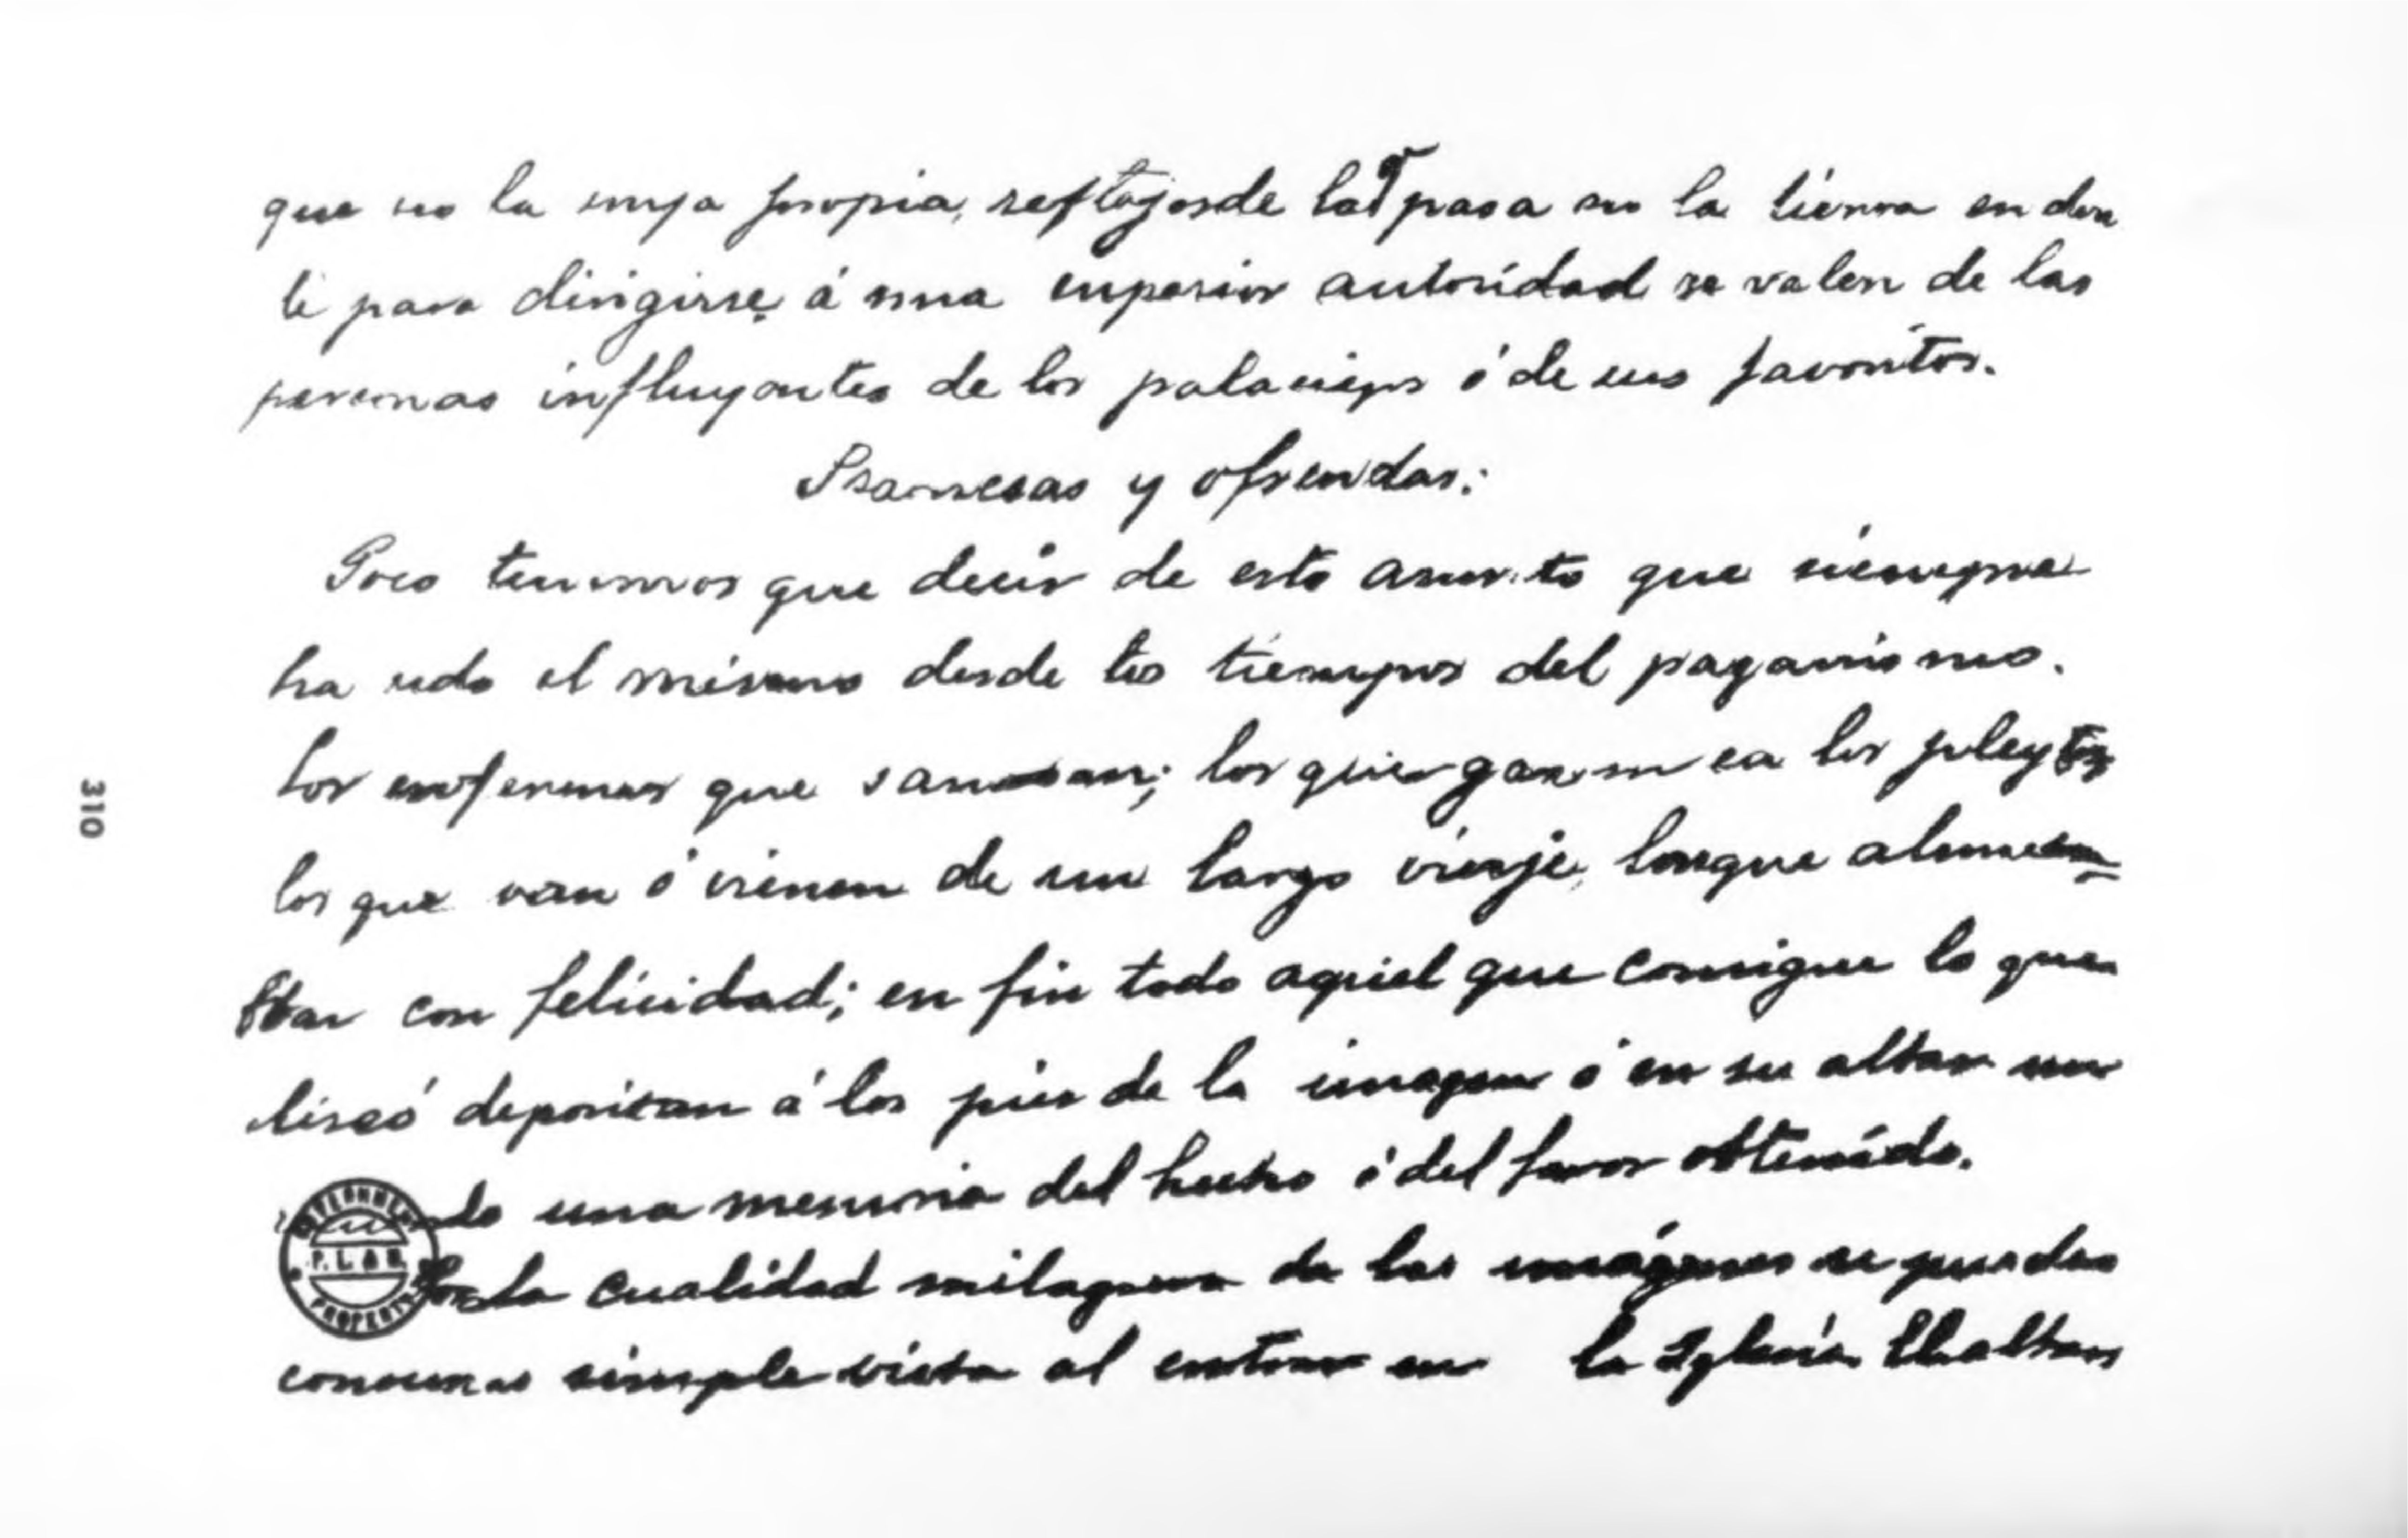 que no la suya propia, reflejos de lo q pasa en la tierra en don
de para dirigirse á una superior autoridad se valen de las
personas influyentes de los palaciegos ó de sus favoritos.
Promesas y ofrendas:
Poco tenemos que decir de este asunto que siempre
ha sido el mismo desde los tiempos del paganismo.
Los enfermos que sanan; los que ganan los pleytos
los que van ó vienen de un largo viaje, los que alum
bran con felicidad; en fin todo aquel que consigue lo que
deseó depositan á los pies de la imagen ó en su altar un
una memoria del hecho ó del favor obtenido.
Por la cualidad milagrosa de las imágenes se pueden
conocer a simple vista al entrar en la Iglesia. El altar
310
P.L.A.R.
PROPERTY